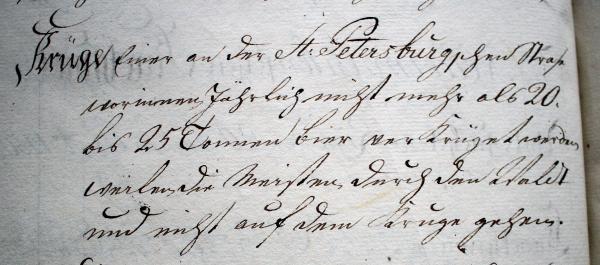 Krüge Einer an der St: Petersburgschen Straße
worinnen Jährlich nicht mehr als 20.
bis 25 Tonnen bier verKrüget werden,
weilen die Meisten durch den Waldt
und nicht auf dem Kruge gehen.